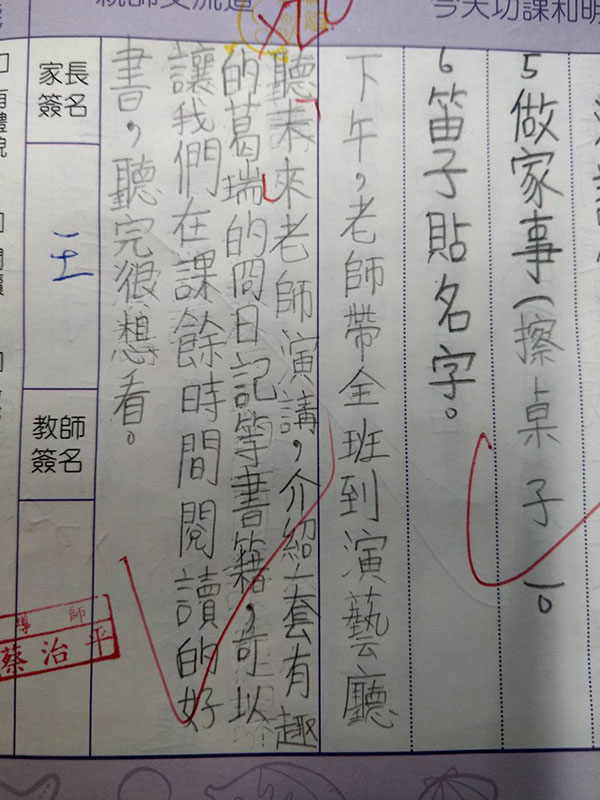 今天功課和明
親師交流道
5做家事(擦桌子)。
6笛子貼名字。
下午，老師帶全班到演藝廳
聽未來老師演講，介紹一套有趣
的葛瑞的囧日記等書籍，可以
讓我們在課餘時間閱讀的好
書，聽完很想看。
家長
簽名
王
教師
簽名
導師
蔡治平
有禮貌